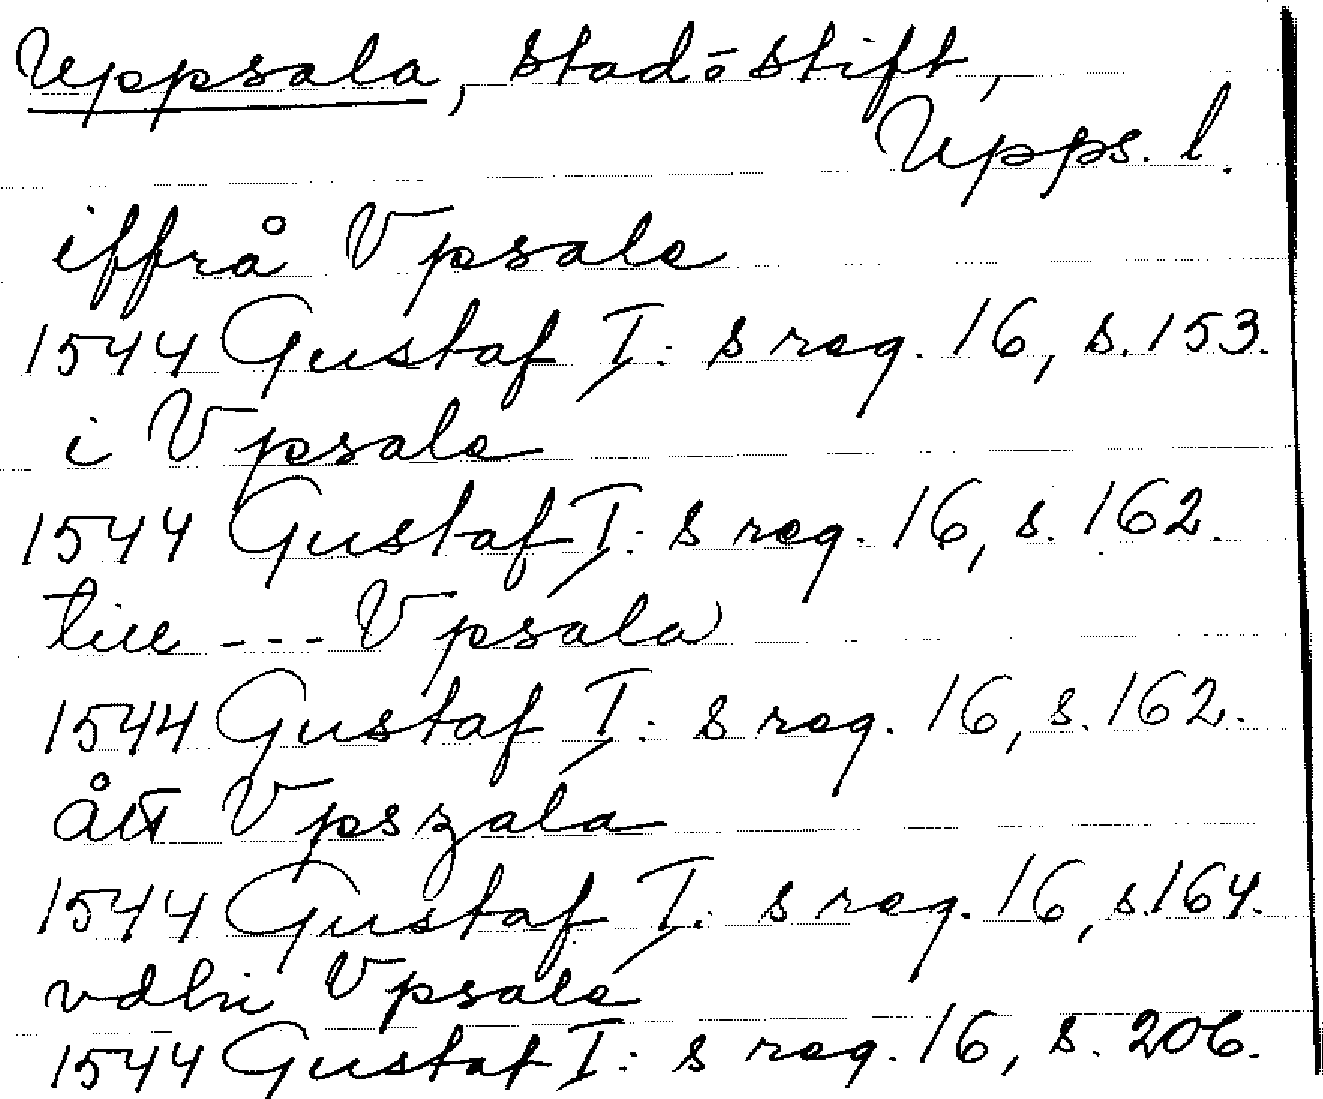 Uppsala, stad o stift,
Upps. l.
iffrå Vpsale
1544 Gustaf I:s reg. 16, s. 153.
i Vpsale
1544 Gustaf I:s reg. 16, s. 162.
till --- Vpsala
1544 Gustaf I:s reg. 16, s. 162.
Vpszala
1544 Gustaf I:s reg. 16, s. 164.
Vpsale
1544 Gustaf I:s reg. 16, s. 206.